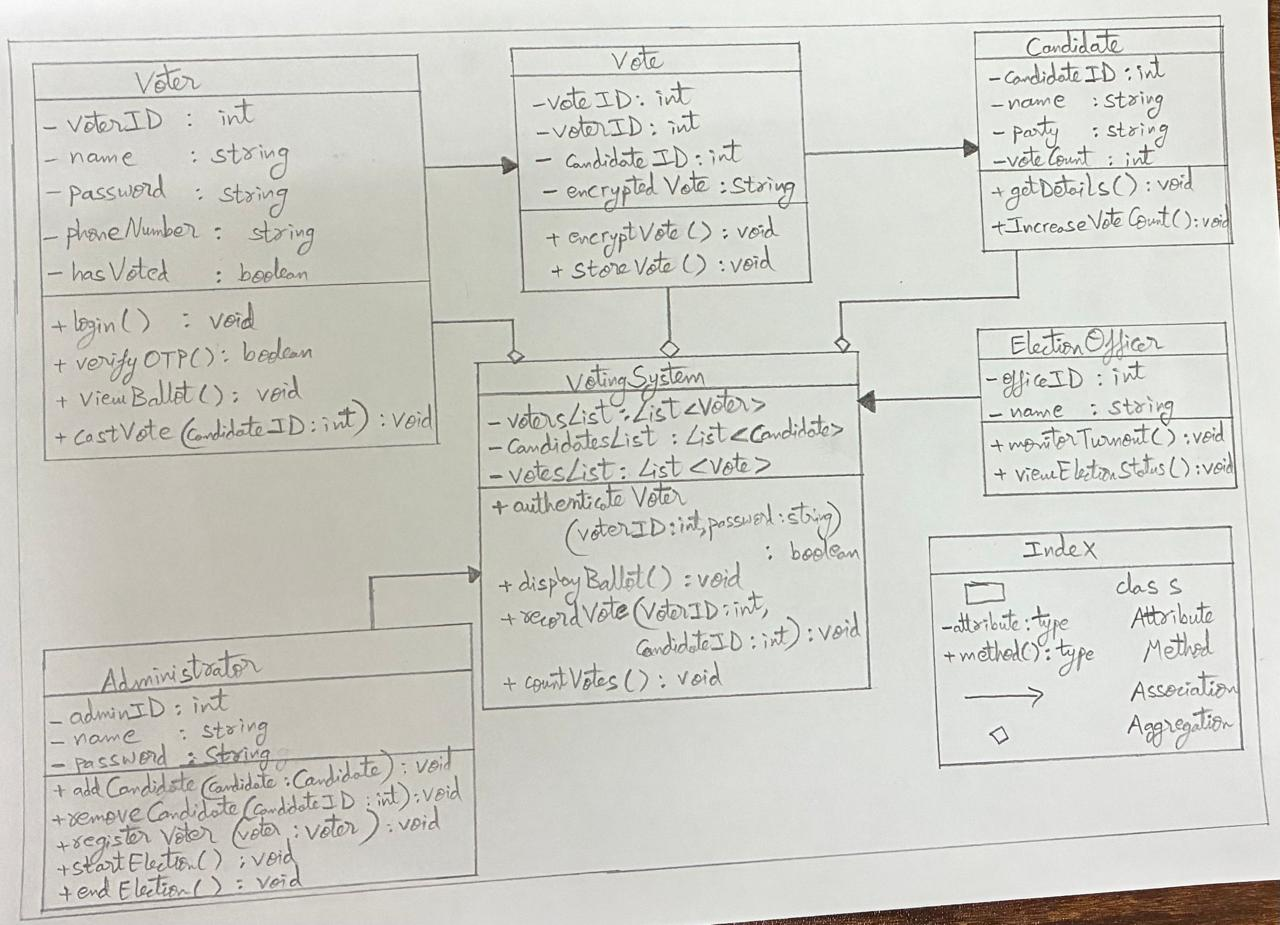 Voter
- VoterID : int
- name : string
- password : string
- phoneNumber : string
- hasVoted : boolean
+ login() : void
+ verifyOTP() : boolean
+ viewBallot() : void
+ castVote (CandidateID : int) : void
Vote
- VoteID : int
- voterID : int
- CandidateID : int
- encryptedVote : String
+ encryptVote() : void
+ storeVote() : void
Candidate
- CandidateID : int
- name : string
- party : string
- voteCount : int
+ getDetails() : void
+ IncreaseVoteCount() : void
VotingSystem
- VotersList : List <Voter>
- CandidatesList : List <Candidate>
- VotesList : List <Vote>
+ authenticate Voter
(VoterID : int, password : string)
: boolean
+ displayBallot() : void
+ recordVote (VoterID : int,
CandidateID : int) : void
+ countVotes() : void
ElectionOfficer
- officeID : int
- name : string
+ monitorTurnout() : void
+ viewElectionStatus() : void
Administrator
- adminID : int
- name : string
- password : String
+ add Candidate (candidate : Candidate) : void
+ remove Candidate (CandidateID : int) : void
+ register Voter (voter : voter) : void
+ startElection() : void
+ end Election() : void
Index
class
- attribute : type Attribute
+ method() : type Method
Association
Aggregation